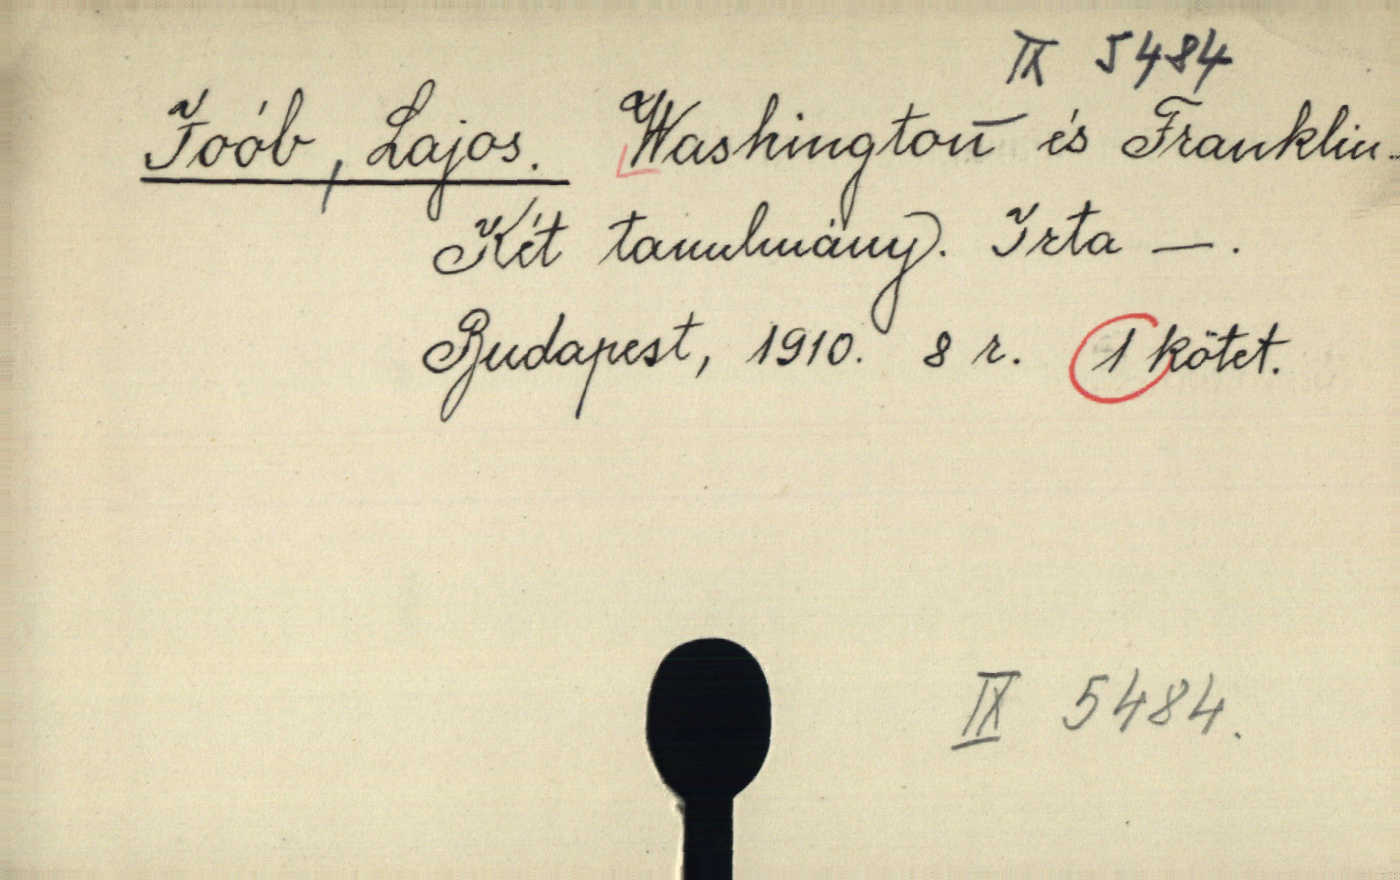 IX 5484
Joób, Lajos. Washington és Franklin.
Két tanulmány. Irta —.
Budapest, 1910. 8 r. 1 kötet.
IX 5484.